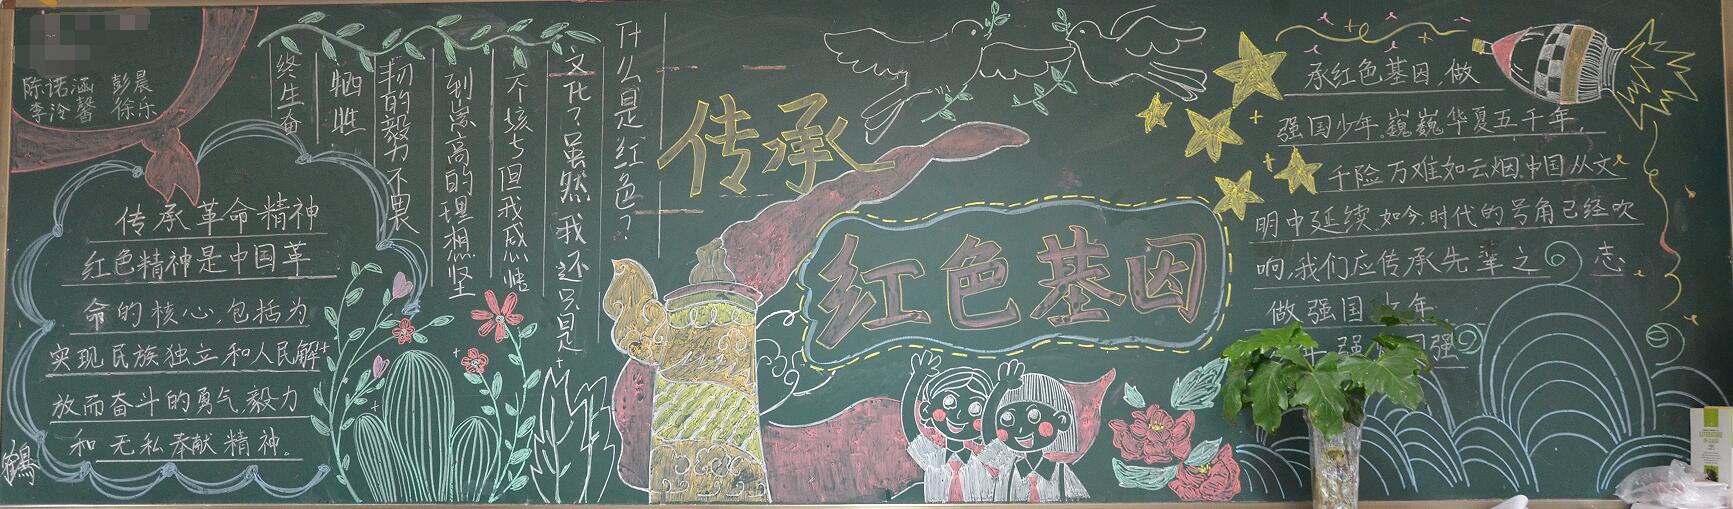 陈诺涵 彭晨
李泠馨 徐乐
传承革命精神
红色精神是中国革
命的核心,包括为
实现民族独立和人民解
放而奋斗的勇气,毅力
和无私奉献精神。
什么是红色?
文化?虽然我还只是
个孩与但我感悟
到崇高的理想坚
韧的毅力不畏
牺牲
终生奋
传承
红色基因
承红色基因,做
强国少年。巍巍华夏五千年,
千险万难如云烟.中国从文
明中延续.如今,时代的号角已经吹
响,我们应传承先辈之 志
做强国少年
年强 国强